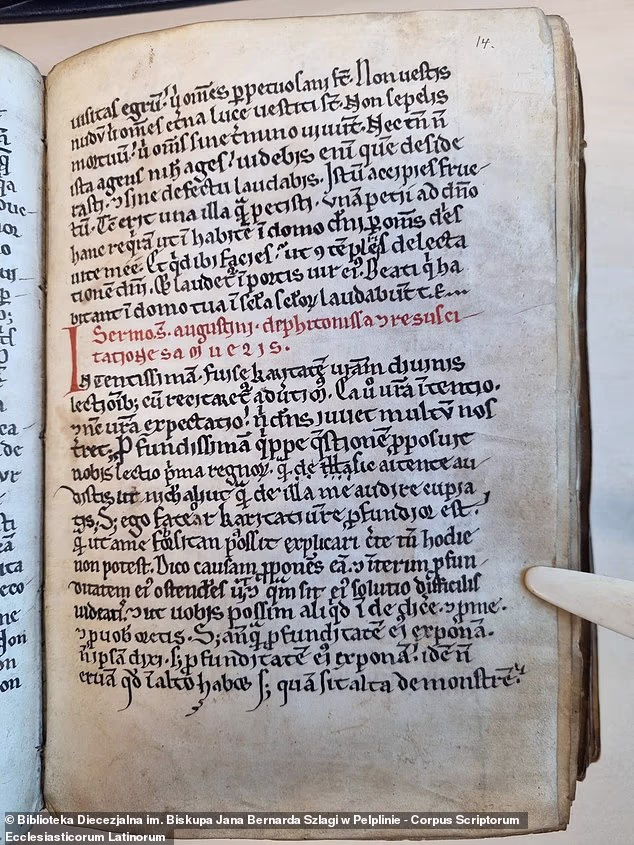 14.
visitas egrū. q̄ om̄es ꝑpetuo sani sт̄. Non vestis
nudū q̄ om̄es et̄na luce vestiti sт̄. Non sepelis
mortuū. q̄ om̄s sine t̄mino vivūt. Nec tn̄ n̄
ista agens nih̄ ages. videbis eni que deside
rasti. ⁊ sine defectu laudabis. Istū accipies fruc
tū. Et erit una illa q̄ petisti. Unā petii ad dn̄o
hanc req̄rā ut ī habitē ī domo dn̄i ꝑ om̄s dies
vite mee. Et q̄d ibi facies. ut ꝯtēples delecta
tionē dn̄i. laudet ī portis Beati q̄ ha
bitant ī domo tua ī scl̄a laudabūt t̄.
Sermo. s̄. augustini. de phitonissa ⁊ resusci
tatione samuelis.
Intentissimā. fuisse karitatē vr̄am divinis
lectionib; cū recitarēt̄ Ca vr̄a ītentio.
vr̄a expectatio. dn̄s iuvet multū nos
t̄ret. Pfundissimā q̄ppe q̄stionē ꝓposuit
nobis lectio p̄ma regnoꝝ. q̄. de attente au
distis ut nich̄ aliut q̄ de illa me audire cupia
tis. S; ego fatear karitati vr̄e ꝓfundior est.
q̄ ut a me forsitan possit explicari c̄te tn̄ hodie
non potest. Dico causam ꝓponēs eā. ⁊ iterim ꝓfun
ditatem ei ostendēs q̄m sit ei solutio difficilis
videati. ⁊ ut vobis possim aliq̄d ī de dic̄e. ⁊ ꝓ me.
⁊ ꝓ vob oretis. S; ꝓfunditatē ei exponā.
n̄ ipsā dixi. s; ꝓfunditatē ei exponā. idē n̄
eruā q̄d ī alto habes s; quā sit alta demonstrē.
© Biblioteka Diecezjalna im. Biskupa Jana Bernarda Szlagi w Pelplinie - Corpus Scriptorum
Ecclesiasticorum Latinorum